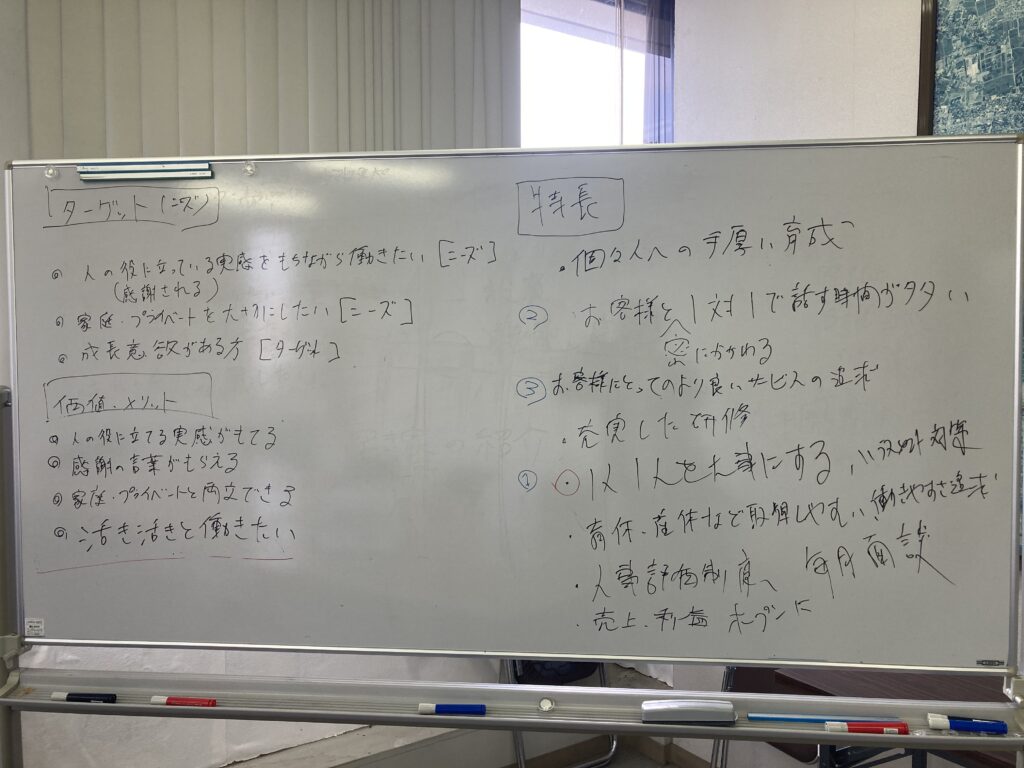 ターゲット(ニーズ)
・人の役に立っている実感をもちながら働きたい [ニーズ]
(感謝される)
・家庭・プライベートを大切にしたい [ニーズ]
・成長意欲がある方 [ターゲット]
価値・メリット
・人の役に立てる実感がもてる
・感謝の言葉がもらえる
・家庭・プライベートと両立できる
・活き活きと働きたい
特長
・個々人への手厚い育成
② お客様と1対1で話す時間が多い
密にかかわる
③ お客様にとってのより良いサービスの追求
・充実した研修
① ・1人1人を大事にする、 対策
・育休・産休など取得しやすい、働きやすさ追求
・人事評価制度、毎月面談
・売上・利益 オープンに